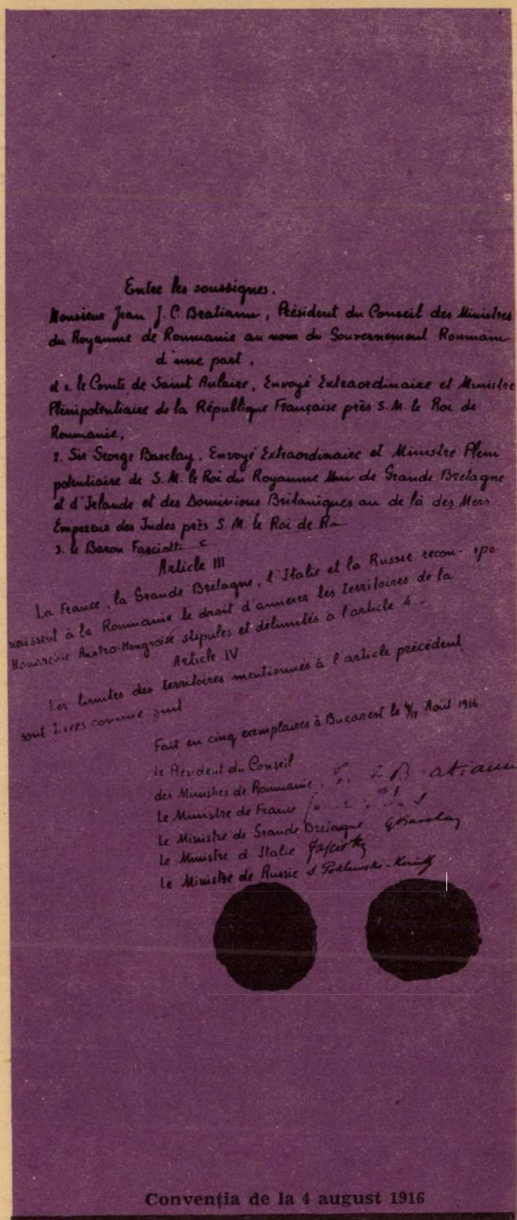 Entre les soussignés.
Monsieur Jean J. C. Bratianu, Président du Conseil des Ministres
du Royaume de Roumanie au nom du Gouvernement Roumain
d'une part,
et 1. le Comte de Saint Aulaire, Envoyé Extraordinaire et Ministre
Plénipotentiaire de la République Française près S. M. le Roi de
Roumanie,
2. Sir George Barclay, Envoyé Extraordinaire et Ministre Pleni
potentiaire de S. M. le Roi du Royaume Uni de Grande Bretagne
et d'Irlande et des Dominions Britaniques au de là des Mers
Empereur des Indes près S. M. le Roi de
3. le Baron Fasciotti
Article III
La France, la Grande Bretagne, l'Italie et la Russie recon-
naissent à la Roumanie le droit d'annexer les territoires de la
Monarchie Austro-Hongroise stipulés et délimités à l'article 4
Article IV
Les limites des territoires mentionnés à l'article précédent
sont fixées comme suit
Fait en cinq exemplaires à Bucarest le 4/17 Août 1916.
Le Président du Conseil
des Ministres de Roumanie
Le Ministre de France
Le Ministre de Grande Bretagne GBarclay
Le Ministre d'Italie Fasciotti
Le Ministre de Russie
Convenția de la 4 august 1916